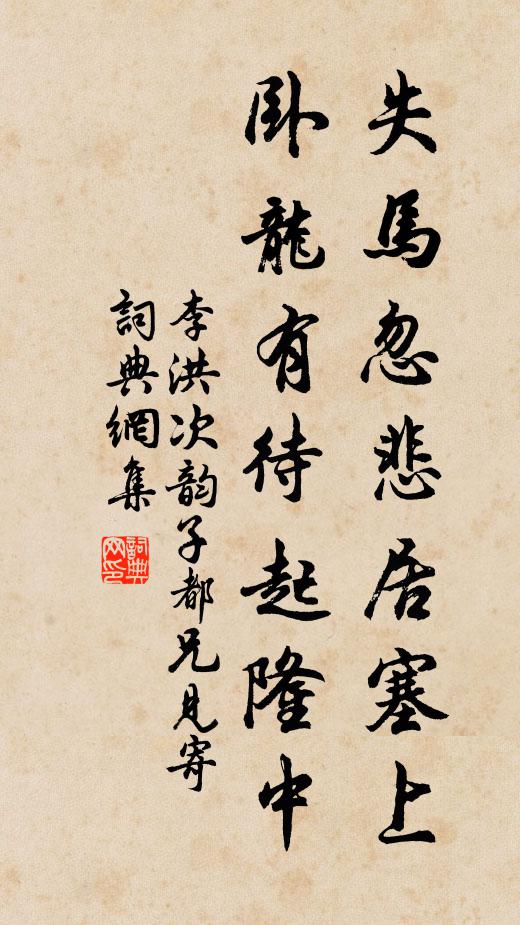 失馬忽悲居塞上
臥龍有待起隆中
李洪次韵子都兄見寄
詞典網集
詞典网印